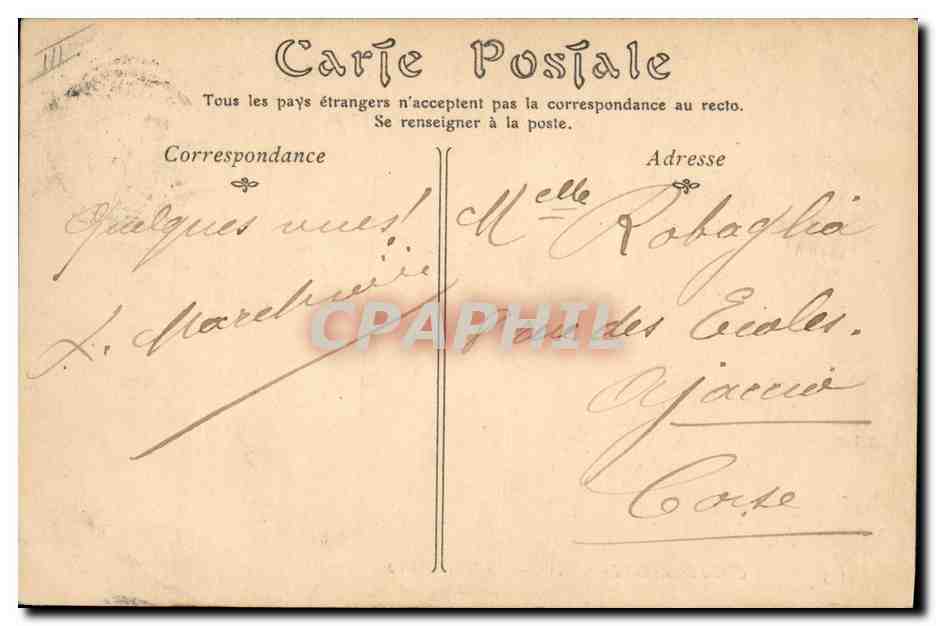 III
Carte Postale
Tous les pays étrangers n'acceptent pas la correspondance au recto.
Se renseigner à la poste.
Correspondance
Quelques vues!
Adresse
Melle Robaglia
des Ecoles.
Ajaccio
Corse
CPAPHIL